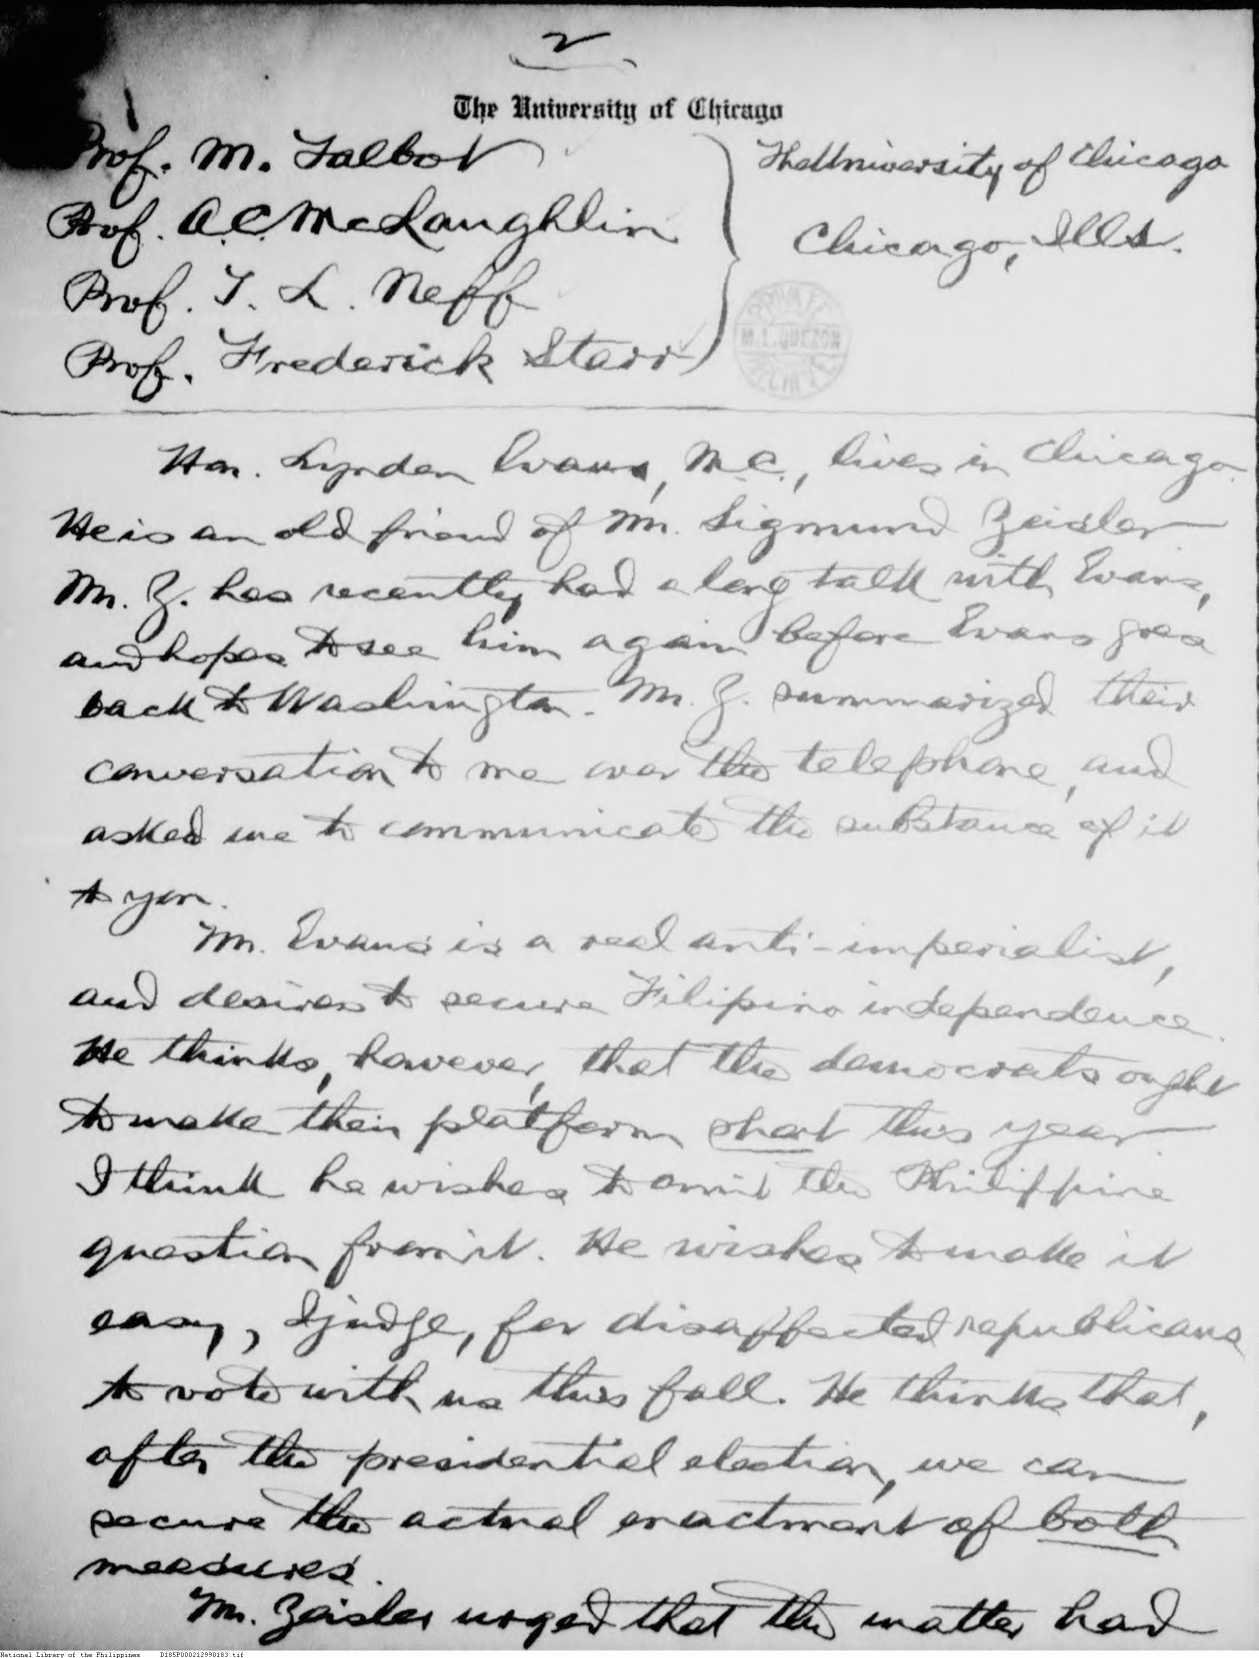 2
The University of Chicago
Prof. M. Talbot
Prof. A. C. McLaughlin
Prof. T. L. Neff
Prof. Frederick Starr
The University of Chicago
Chicago, Ills.
PRIVATE
M. L. QUEZON
Hon. Lynden Evans, M.C., lives in Chicago.
He is an old friend of Mr. Sigmund Zeisler
Mr. Z. has recently had a long talk with Evans,
and hopes to see him again before Evans goes
back to Washington. Mr. Z. summarized their
conversation to me over the telephone, and
asked me to communicate the substance of it
to you.
Mr. Evans is a real anti-imperialist,
and desires to secure Filipino independence.
He thinks, however, that the democrats ought
to make their platform short this year
I think he wishes to omit the Philippine
question from it. He wishes to make it
easy, I judge, for disaffected republicans
to vote with us this fall. He thinks that,
after the presidential election, we can
secure the actual enactment of both
measures.
Mr. Zeisler urged that the matter had
National Library of the Philippines D185P000212990183.tif